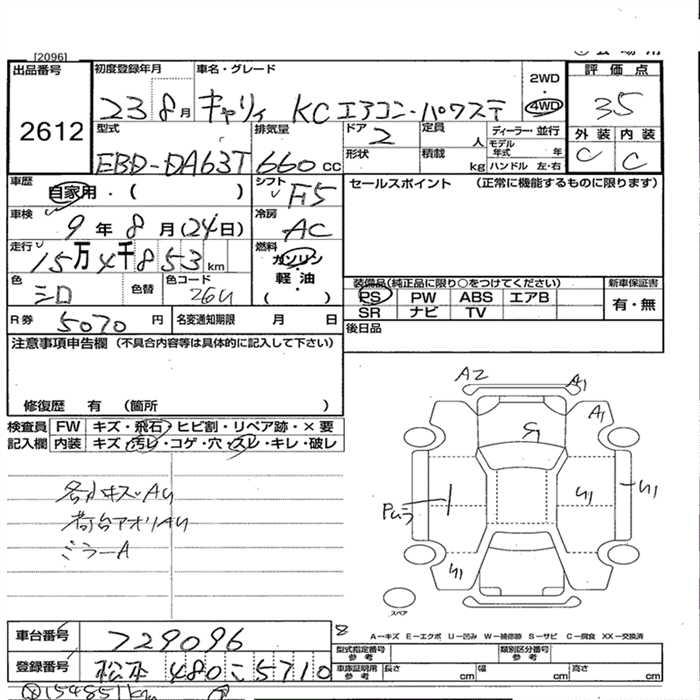 [2096]
出品番号
2612
初度登録年月
23 8月
車名・グレード
キャリィ KCエアコン・パワステ
2WD
・
4WD
評価点
35
外装 内装
C C
型式
EBD-DA63T
排気量
660cc
ドア 2
定員 人
ディーラー・並行
モデル年式 年
形状
積載 kg
ハンドル 左・右
車歴
自家用・( )
シフト F5
セールスポイント (正常に機能するものに限ります)
車検
9年8月(24日)
冷房
AC
走行
15万4千853km
燃料
ガソリン
・
軽油
( )
色
シロ
色替
色コード
26U
装備品(純正品に限り○をつけてください)
新車保証書
PS PW ABS エアB
有・無
SR ナビ TV
R券 5070円
名変通知期限 月 日
後日品
注意事項申告欄(不具合内容等は具体的に記入して下さい)
修復歴 有 (箇所 )
検査員 FW キズ・飛石・ヒビ割・リペア跡・×要
記入欄 内装 キズ・汚レ・コゲ・穴・スレ・キレ・破レ
各小キズAU
荷台アオリAU
ミラーA
A2
A1
A1
U1
U1
U1
スペア
車台番号
729096
登録番号
松本 480こ5710
154851km
A−キズ E−エクボ U−凹み W−補修跡 S−サビ C−腐食 XX−交換済
型式指定番号
参考
類別区分番号
参考
車庫証明用
参考
長さ cm
幅 cm
高さ cm